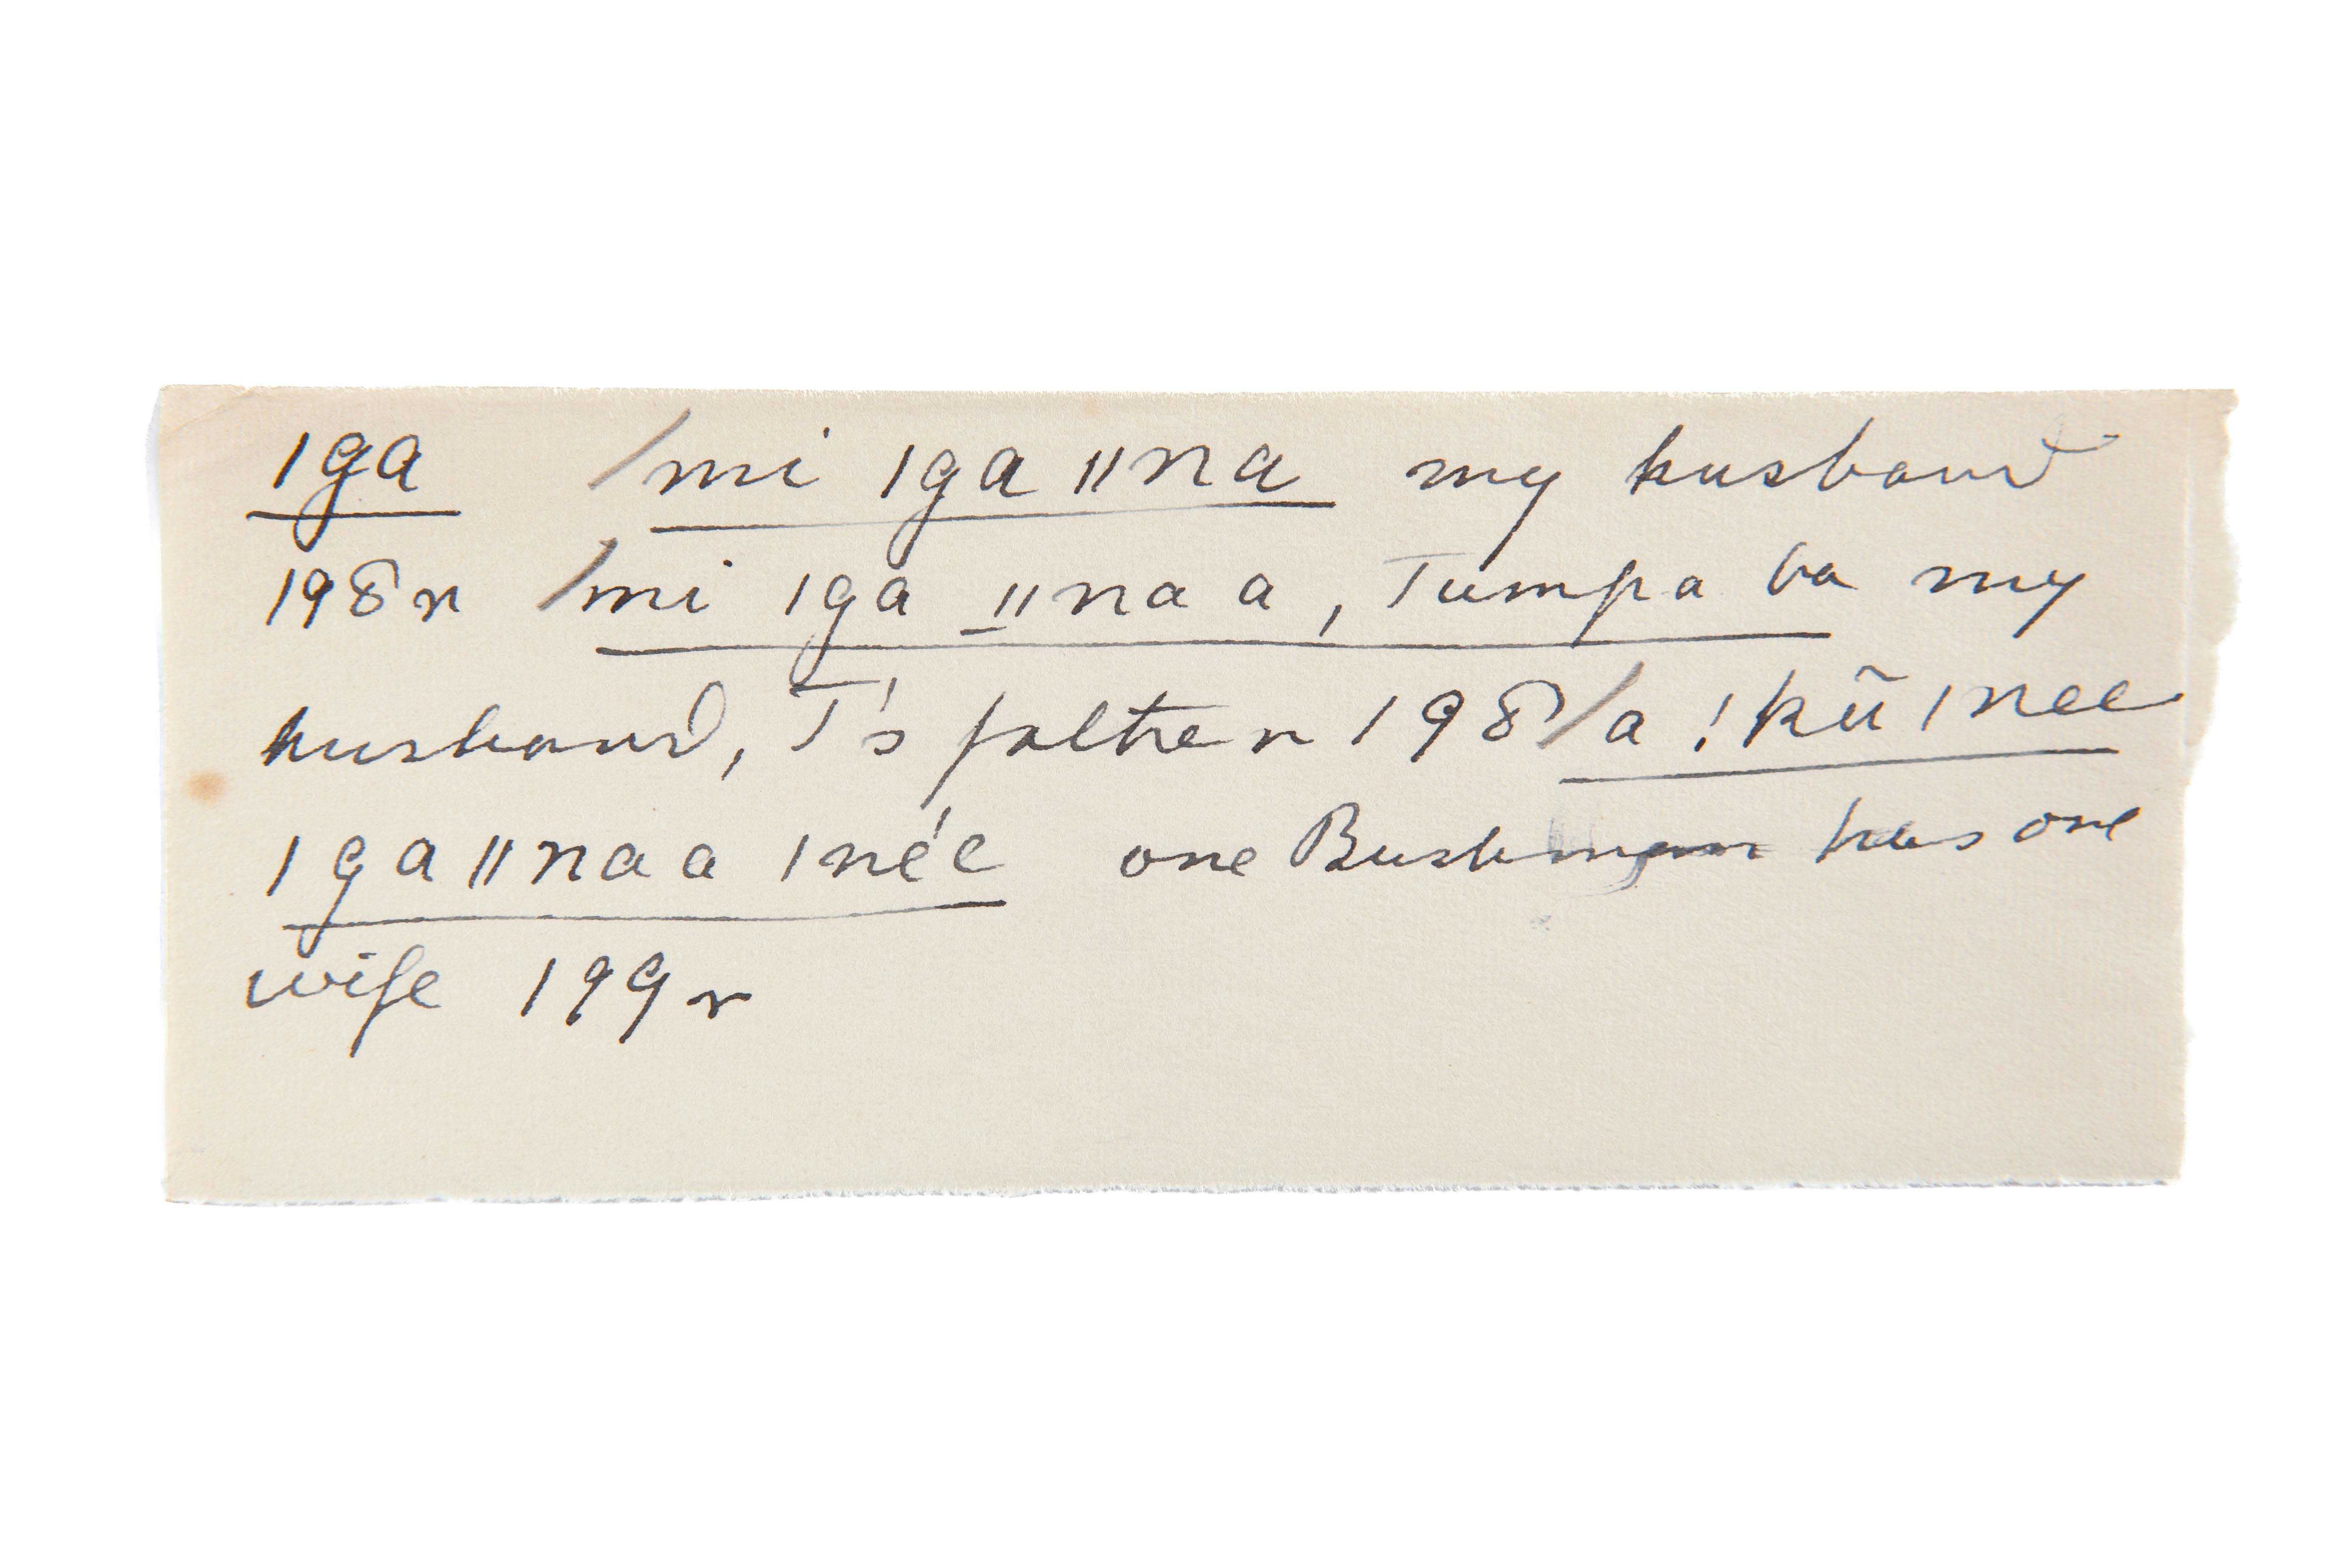 ǀga /mi ǀga ǁna my husband
198r /mi ǀga ǁna a, Tumpa ba my
husband, T's father 198 /a !kũ ǀnee
ǀga ǁna a ǀnée one Bushman has one
wife 199r